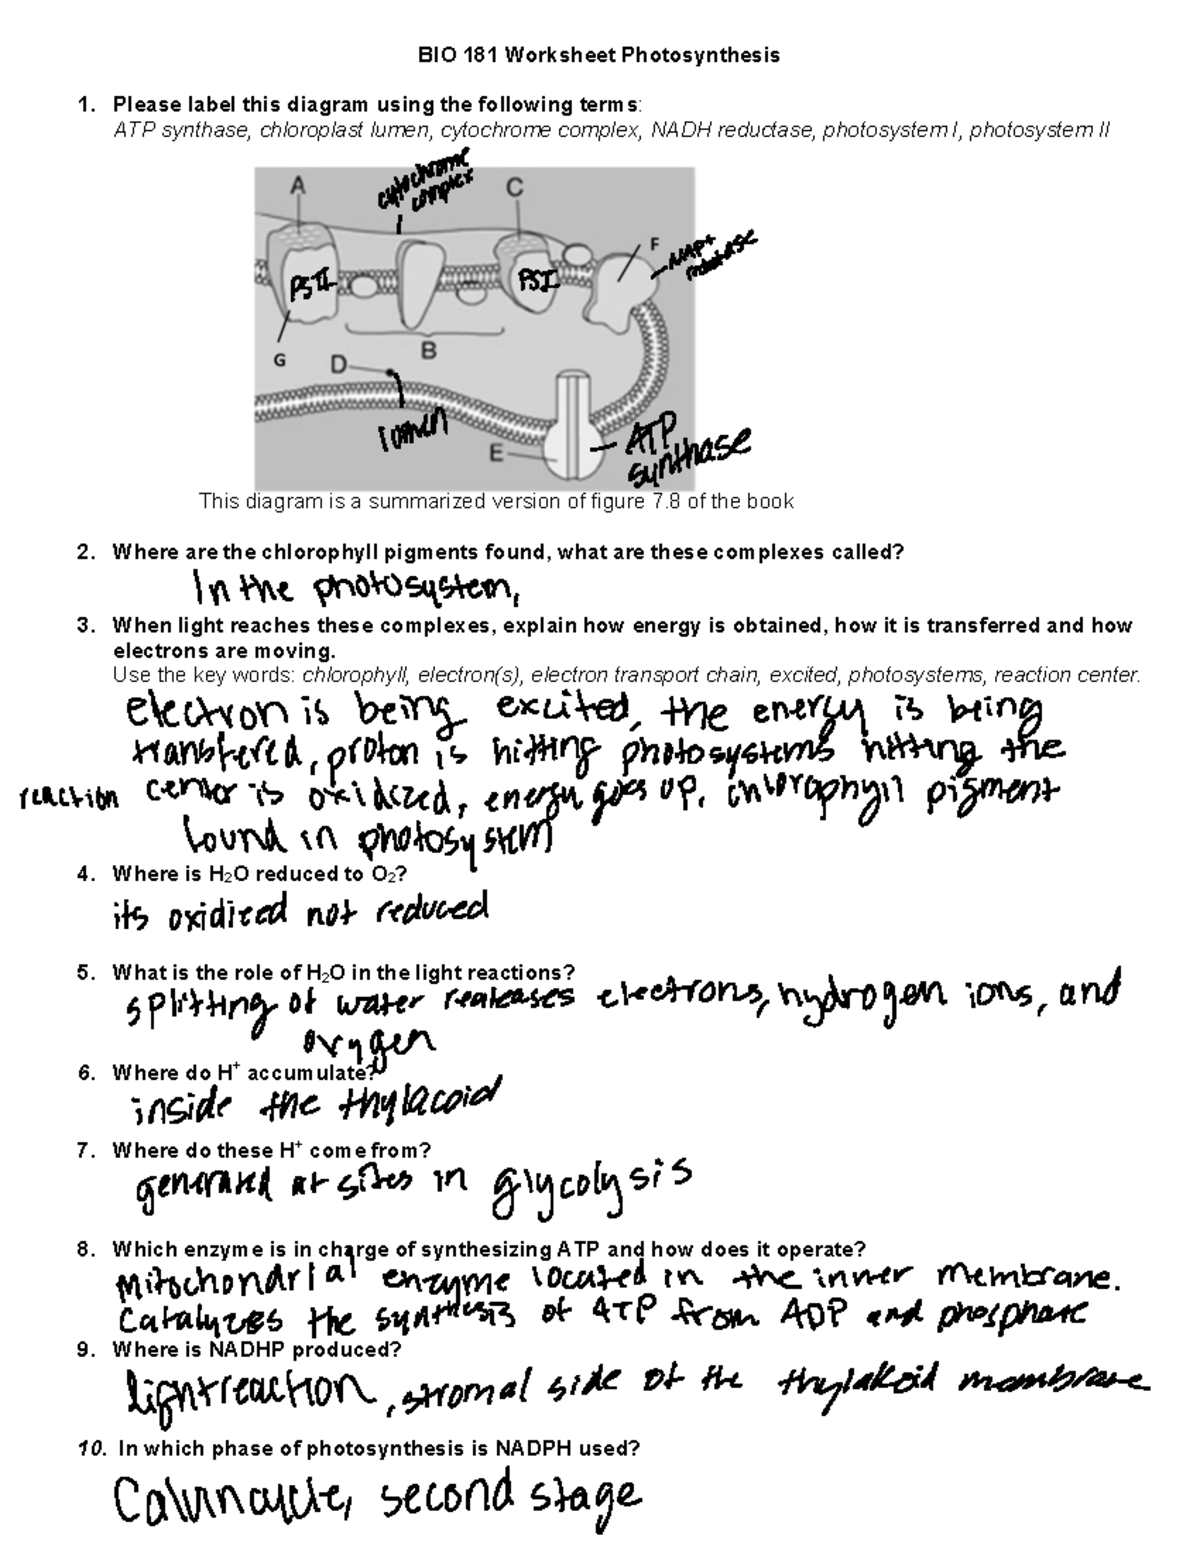 BIO 181 Worksheet Photosynthesis
1. Please label this diagram using the following terms:
ATP synthase, chloroplast lumen, cytochrome complex, NADH reductase, photosystem I, photosystem II
cytochrome
complex
A
C
F
NADP+
reductase
PSII
PSI
G
D
B
lumen
E
ATP
synthase
This diagram is a summarized version of figure 7.8 of the book
2. Where are the chlorophyll pigments found, what are these complexes called?
In the photosystem,
3. When light reaches these complexes, explain how energy is obtained, how it is transferred and how
electrons are moving.
Use the key words: chlorophyll, electron(s), electron transport chain, excited, photosystems, reaction center.
electron is being excited, the energy is being
transfered, proton is hitting photosystems hitting the
reaction center is oxidized, energy goes up. chlorophyll pigment
found in photosystem
4. Where is H2O reduced to O2?
its oxidized not reduced
5. What is the role of H2O in the light reactions?
splitting of water realeases electrons, hydrogen ions, and
oxygen
6. Where do H+ accumulate?
inside the thylacoid
7. Where do these H+ come from?
generated at sites in glycolysis
8. Which enzyme is in charge of synthesizing ATP and how does it operate?
Mitochondrial enzyme located in the inner membrane.
Catalyzes the synthesis of ATP from ADP and phosphate
9. Where is NADHP produced?
lightreaction, stromal side of the thylakoid membrane
10. In which phase of photosynthesis is NADPH used?
Calvincycle, second stage